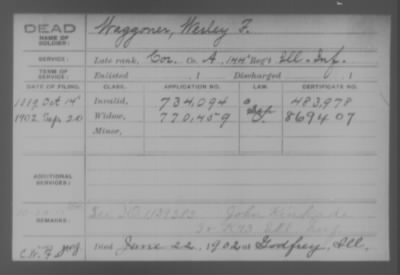 DEAD
NAME OF SOLDIER:
Waggoner, Wesley F.
SERVICE:
Late rank, Cor. Co. A, 144" Reg't Ill. Inf.
TERM OF SERVICE:
Enlisted , 1 Discharged , 1
DATE OF FILING. CLASS. APPLICATION NO. LAW. CERTIFICATE NO.
1889 Oct 14" Invalid, 734,094 483,978
1902 Sep 20 Widow, 770,459 869407
Minor,
ADDITIONAL SERVICES:
REMARKS:
See John
Ill.
Died June 22, 1902 at Godfrey, Ill.